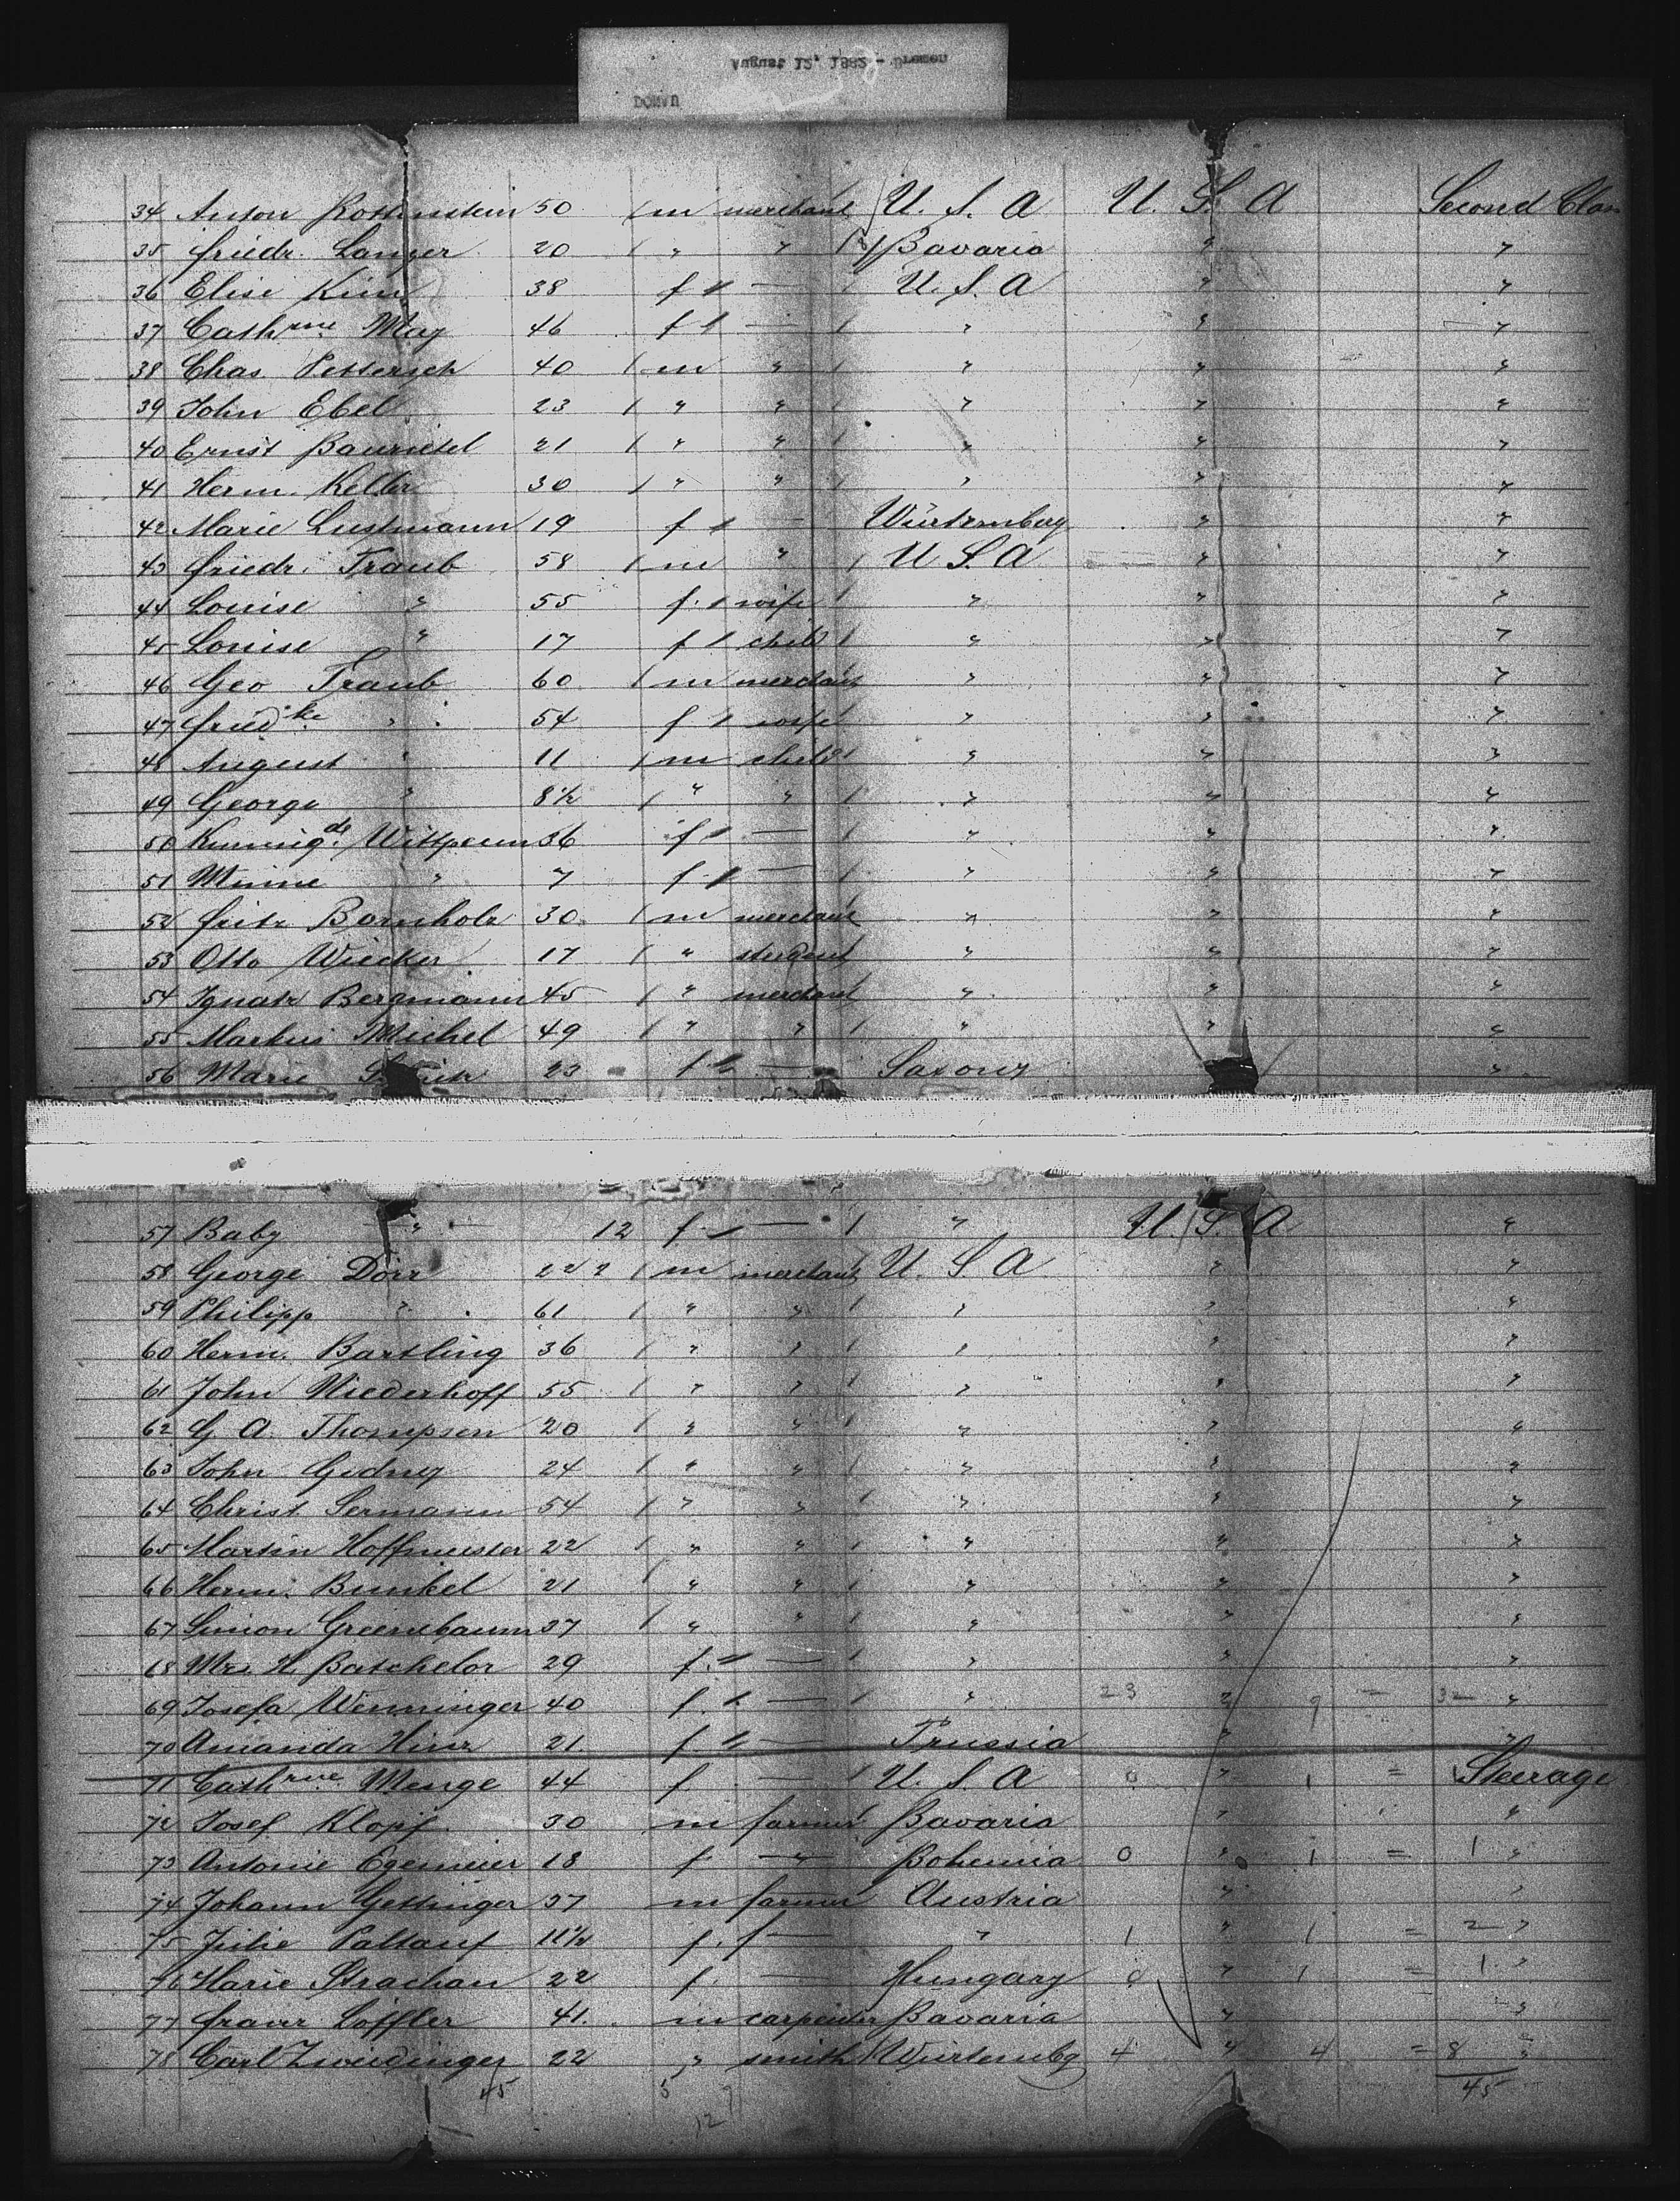 August 12, 1882 - Bremen
DONAU
34 Anton Rothenstein 50 / m merchant U. S. A U. S. A Second Class
35 Friedr. Langer 20 / " " / Bavaria " "
36 Elise 38 f / — U. S. A " "
37 Cathrine May 46 f / — / " " "
38 Chas. Pettersch 40 / m " / " " "
39 John Ebel 23 / " " / " " "
40 Ernst 21 / " " / " " "
41 Herm. Keller 30 / " " / " " "
42 Marie Lustmann 19 f / - Würtemberg " "
43 Friedr. Traub 58 / m " / U S. A " "
44 Louise " 55 f. / wife / " " "
45 Louise " 17 f / child / " " "
46 Geo Traub 60 / m merchant " " "
47 Friedke " 54 f / wife " " "
48 August " 11 / m child / " " "
49 George " 8½ / " " / " " "
50 Kunnigde. 36 f / — / " " "
51 Minne " 7 f / — / " " "
52 Fritz Bornholz 30 / m merchant " " "
53 Otto Wiecker 17 / " student " " "
54 Ignatz Bergmann 45 / " merchant " " "
55 Markus Michel 49 / " " / " " "
56 Marie 23 f / — Saxony "
57 Baby " 12 f / — / " U. S. A "
58 George Dörr 22 2 / m merchant U. S A " "
59 Philipp " 61 / " " / " " "
60 Herm. Bartling 36 / " " / " " "
61 John Niederhoff 55 / " " / " " "
62 G. A. Thompson 20 / " " / " " "
63 John Gedney 24 / " " / " " "
64 Christ. Sermann 54 / " " / " " "
65 Martin Hoffmeister 22 / " " / " " "
66 Herm. Bunkel 21 / " " / " " "
67 Simon Greenebaum 37 / " " / " " "
68 Mrs. H. Batchelor 29 f. / — / " " "
69 Josefa Wenninger 40 f. / — / " 23 " 9 = 32 "
70 Amanda Hinz 21. f. / — Prussia " "
71 Cathrine Menge 44 f — / U. S. A 0 " 1 = 1 Steerage
72 Josef Klopf 30 m farmer Bavaria " "
73 Antonie Egemeier 18 f — Bohemia 0 " 1 = 1 "
74 Johann Gettinger 37 m farmer Austria " "
75 Julie Paltauf 11½ f. f — " 1 " 1 = 2 "
76 Marie Strachan 22 f. — Hungary 0 " 1 = 1 "
77 Franz Löffler 41. m carpenter Bavaria " "
78 Carl Zweidinger 22 " smith Würtembg 4 " 4 = 8 "
45 5 9 45
12